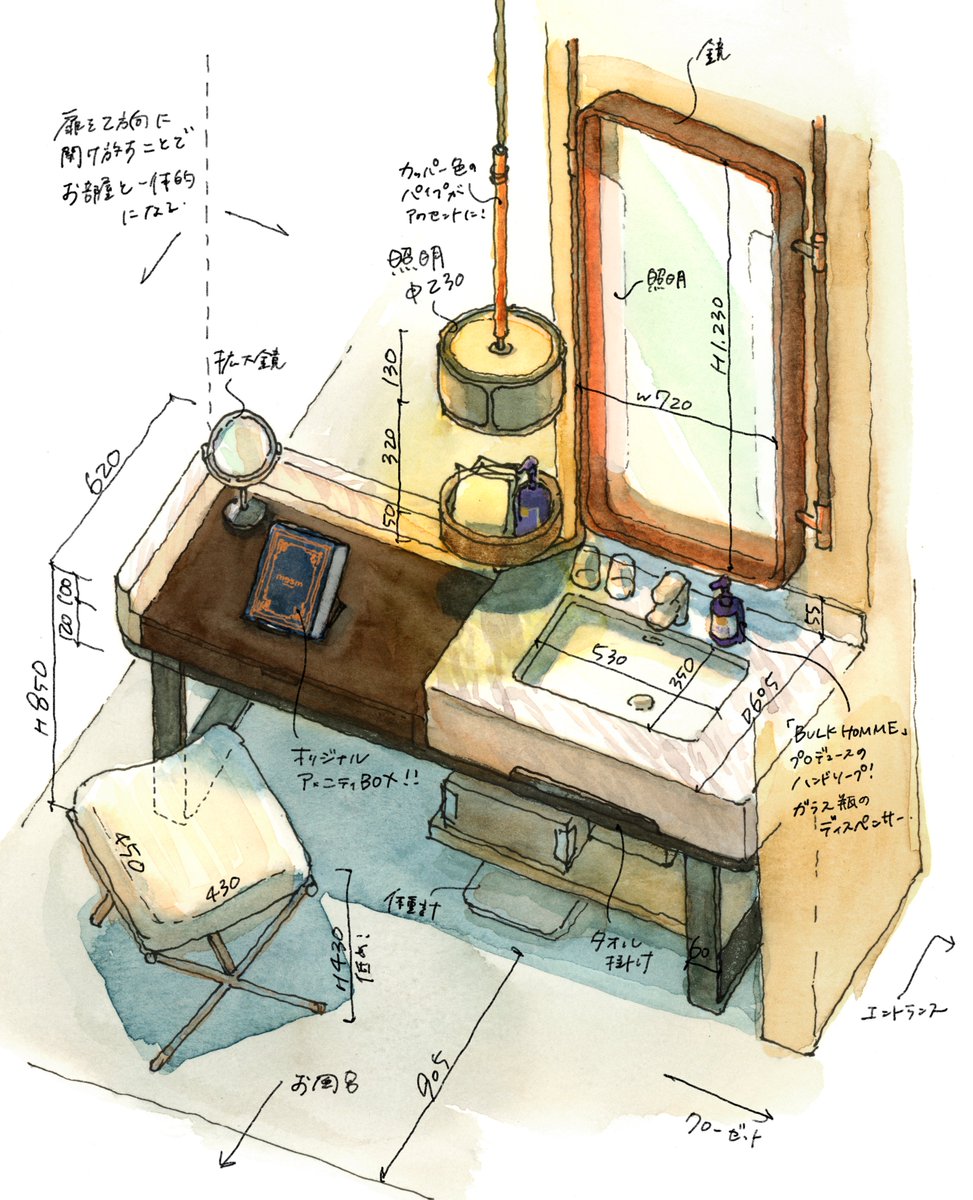 鏡
扉を2方向に
開け放すことで
お部屋と一体的
になる。
カッパー色の
パイプが
アクセントに!
照明
φ230
照明
H1.230
W720
拡大鏡
130
320
50
620
mesm
100
120
H850
55
530
350
D605
「BULK HOMME」
プロデュースの
ハンドソープ!
ガラス瓶の
ディスペンサー。
オリジナル
アメニティBOX!!
450
430
体重計
タオル
掛け
60
H430
低め!
エントランス
905
お風呂
クローゼット